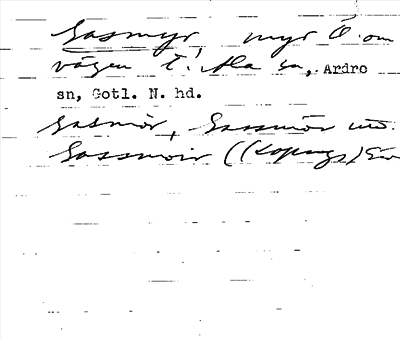 Gasmyr, myr Ö. om
vägen t. Ala sn, Ardre
sn, Gotl. N. hd.
Gasmör, Gassmör
Gassmoir